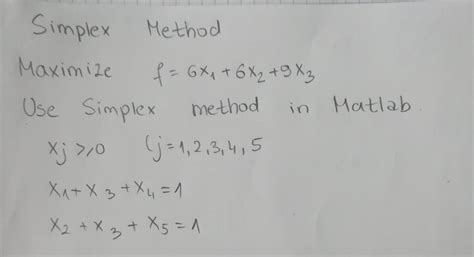 Simplex Method
Maximize f = 6x₁ + 6x₂ + 9x₃
Use Simplex method in Matlab.
xj ≥ 0 (j = 1, 2, 3, 4, 5
x₁ + x₃ + x₄ = 1
x₂ + x₃ + x₅ = 1